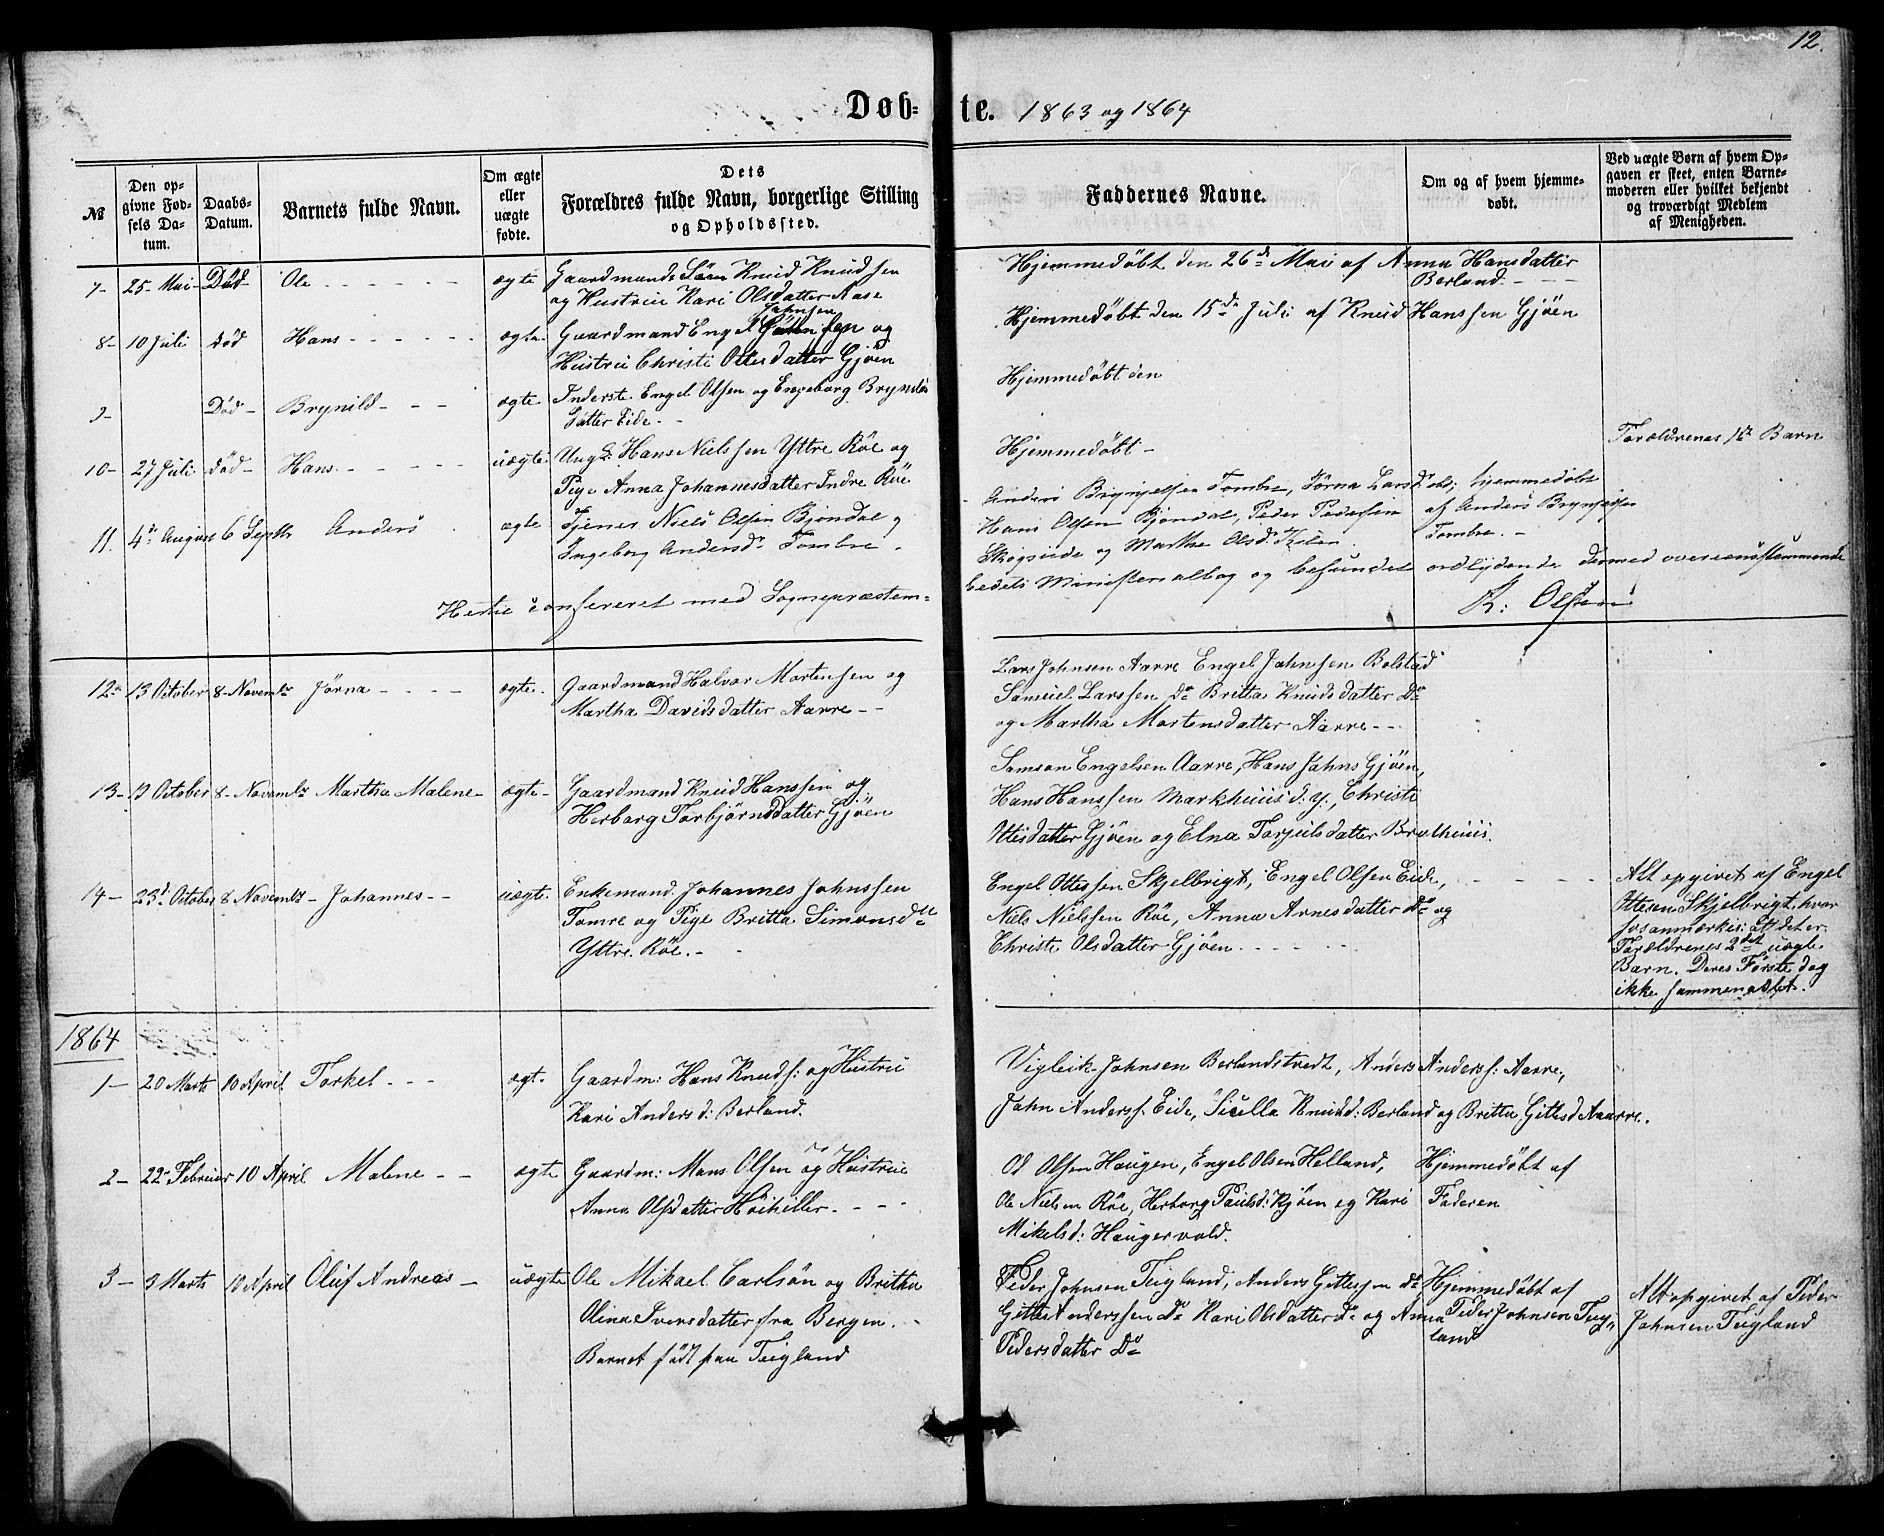 12.
Døb-te. 1863 og 1864
№
Den op-
givne Fød-
sels Da-
tum.
Daabs-
Datum.
Barnets fulde Navn.
Om ægte
eller
uægte
fødte.
Dets
Forældres fulde Navn, borgerlige Stilling
og Opholdssted.
Faddernes Navne.
Om og af hvem hjemme-
døbt.
Ved uægte Børn af hvem Op-
gaven er skeet, enten Barne-
moderen eller hvilket bekjendt
og troværdigt Medlem
af Menigheden.
7- 25- Mai- Død Ole - - - - - - ægte Gaardmands Søn Knud Knudsen
og Hustrue Kari Olsdatter Aase
Hjemmedøbt den 26de Mai af Anna Hansdatter
Berland. - - -
8- 10 Juli død Hans - - - - - - ægte- Gaardmand Engel Johnsen og
Hustrue Christi Ottesdatter Gjöen
Hjemmedøbt den 15de Juli af Knud Hanssen Gjöen
9- Død- Brynild- - - - ægte Inderste Engel Olsen og Engeborg Brynilds
datter Eide - -
Hjemmedøbt den
10- 27 Juli død- Hans - - - - - uægte Ungk: Hans Nielssen Yttre Röe og
Pige Anna Johannesdatter Indre Röe
Hjemmedøbt -
Forældrenes 1ste Barn
11. 4de August 6 Septbr Anders ægte Tjener Niels Olsen Bjøndal og
Ingeborg Andersdr Tombre -
Anders Brynjelsen Tombre, Jörna Larsd. ibd;
Hans Olsen Bjøndal, Peder Pedersen
Skogseide og Marthe Olsd.
hjemmedøbt
af Anders Brynjelsen
Tombre. -
Hertil confereret med Sognepræstem-
bedets Ministerialbog og befundet ordlydende dermed overeensstemmende
K: Olsen
12- 13 October 8- Novembr Jörna - - - - ægte. Gaardmand Halvor Mortensen og
Martha Davidsdatter Aarre - -
Lars Johnsen Aarre Engel Johnsen Bolstad
Samuel Larssen Do Britta Knudsdatter Do
og Martha Mortensdatter Aarre - -
13- 13 October 8- Novembr Martha Malene- ægte- Gaardmand Knud Hanssen og
Herborg Torbjörnsdatter Gjöen
Samson Engelsen Aarre, Hans Johns Gjöen,
Hans Hanssen Markhuus d. y., Christi
Ottesdatter Gjöen og Elna Torjulsdatter Brulhuus.
14- 23de October 8 Novembr- Johannes - - uægte. Enkemand Johannes Johnssen
Tomre og Pige Britta Simonsdtr
Yttre Röe. -
Engel Ottessen Skjelbrigt, Engel Olsen Eide,
Niels Nielssen Röe, Anna Arnesdatter Do og
Christi Olsdatter Gjöen - - - - -
Alt opgivet af Engel
Ottesen Skjelbrigt, hvor
hosanmærkes: at det er
Forældrenes 2det uægte
Barn. Deres Første dog
ikke sammenavlet.
1864
1- 20 Marts 10 April Torkel - - - ægt. Gaardm: Hans Knuds: og Hustrue
Kari Andersd: Berland.
Vigleik Johnsen Berlandstvedt, Anders Anderss: Aarre,
John Anderss: Eide, Sicella Knudsd: Berland og Britta Gittesd Aaarre.
2- 22- Februar 10 April Malene - - ægte Gaardm: Mons Olsen og Hustrue
Anna Olsdatter Höiheller. - - -
Ol Olsen Haugen, Engel Olsen Helland,
Ole Nielsen Röe, Herborg Paulsd: Kjöen og Kari
Mikelsd: Haugervold.
Hjemmedøbt af
Faderen
3- 3 Marts 10 April Oluf Andreas- uægte Ole Mikael Carlsön og Britha
Olina Iversdatter fra Bergen. -
Barnet födt paa Teigland
Peder Johnsen Teigland, Anders Gittessen Do
Gitte Anderssen Do Kari Olsdatter Do og Anna
Pedersdatter Do
Hjemmedøbt af
Peder Johnsen Teig-
land
Alt opgivet af Peder
Johnsen Teigland